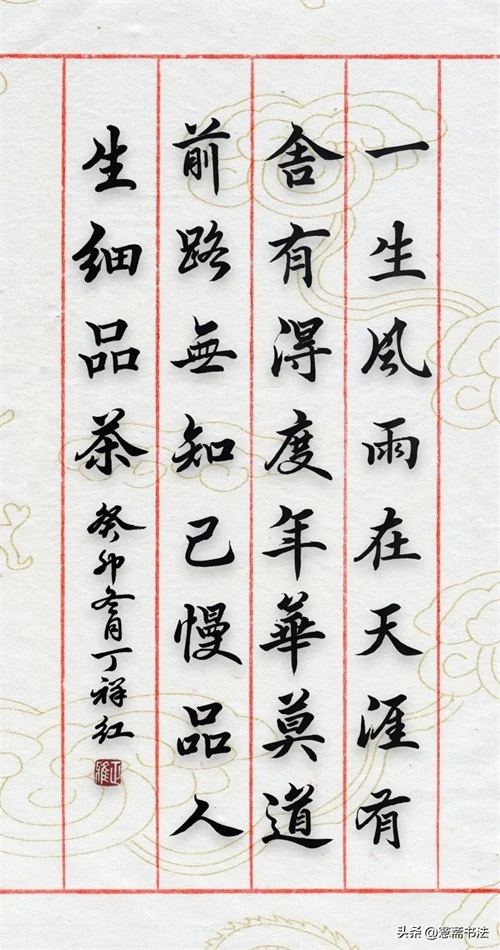 一生風雨在天涯有
舍有得度年華莫道
前路無知己慢品人
生細品茶
癸卯冬月丁祥红
头条 @憲斋书法